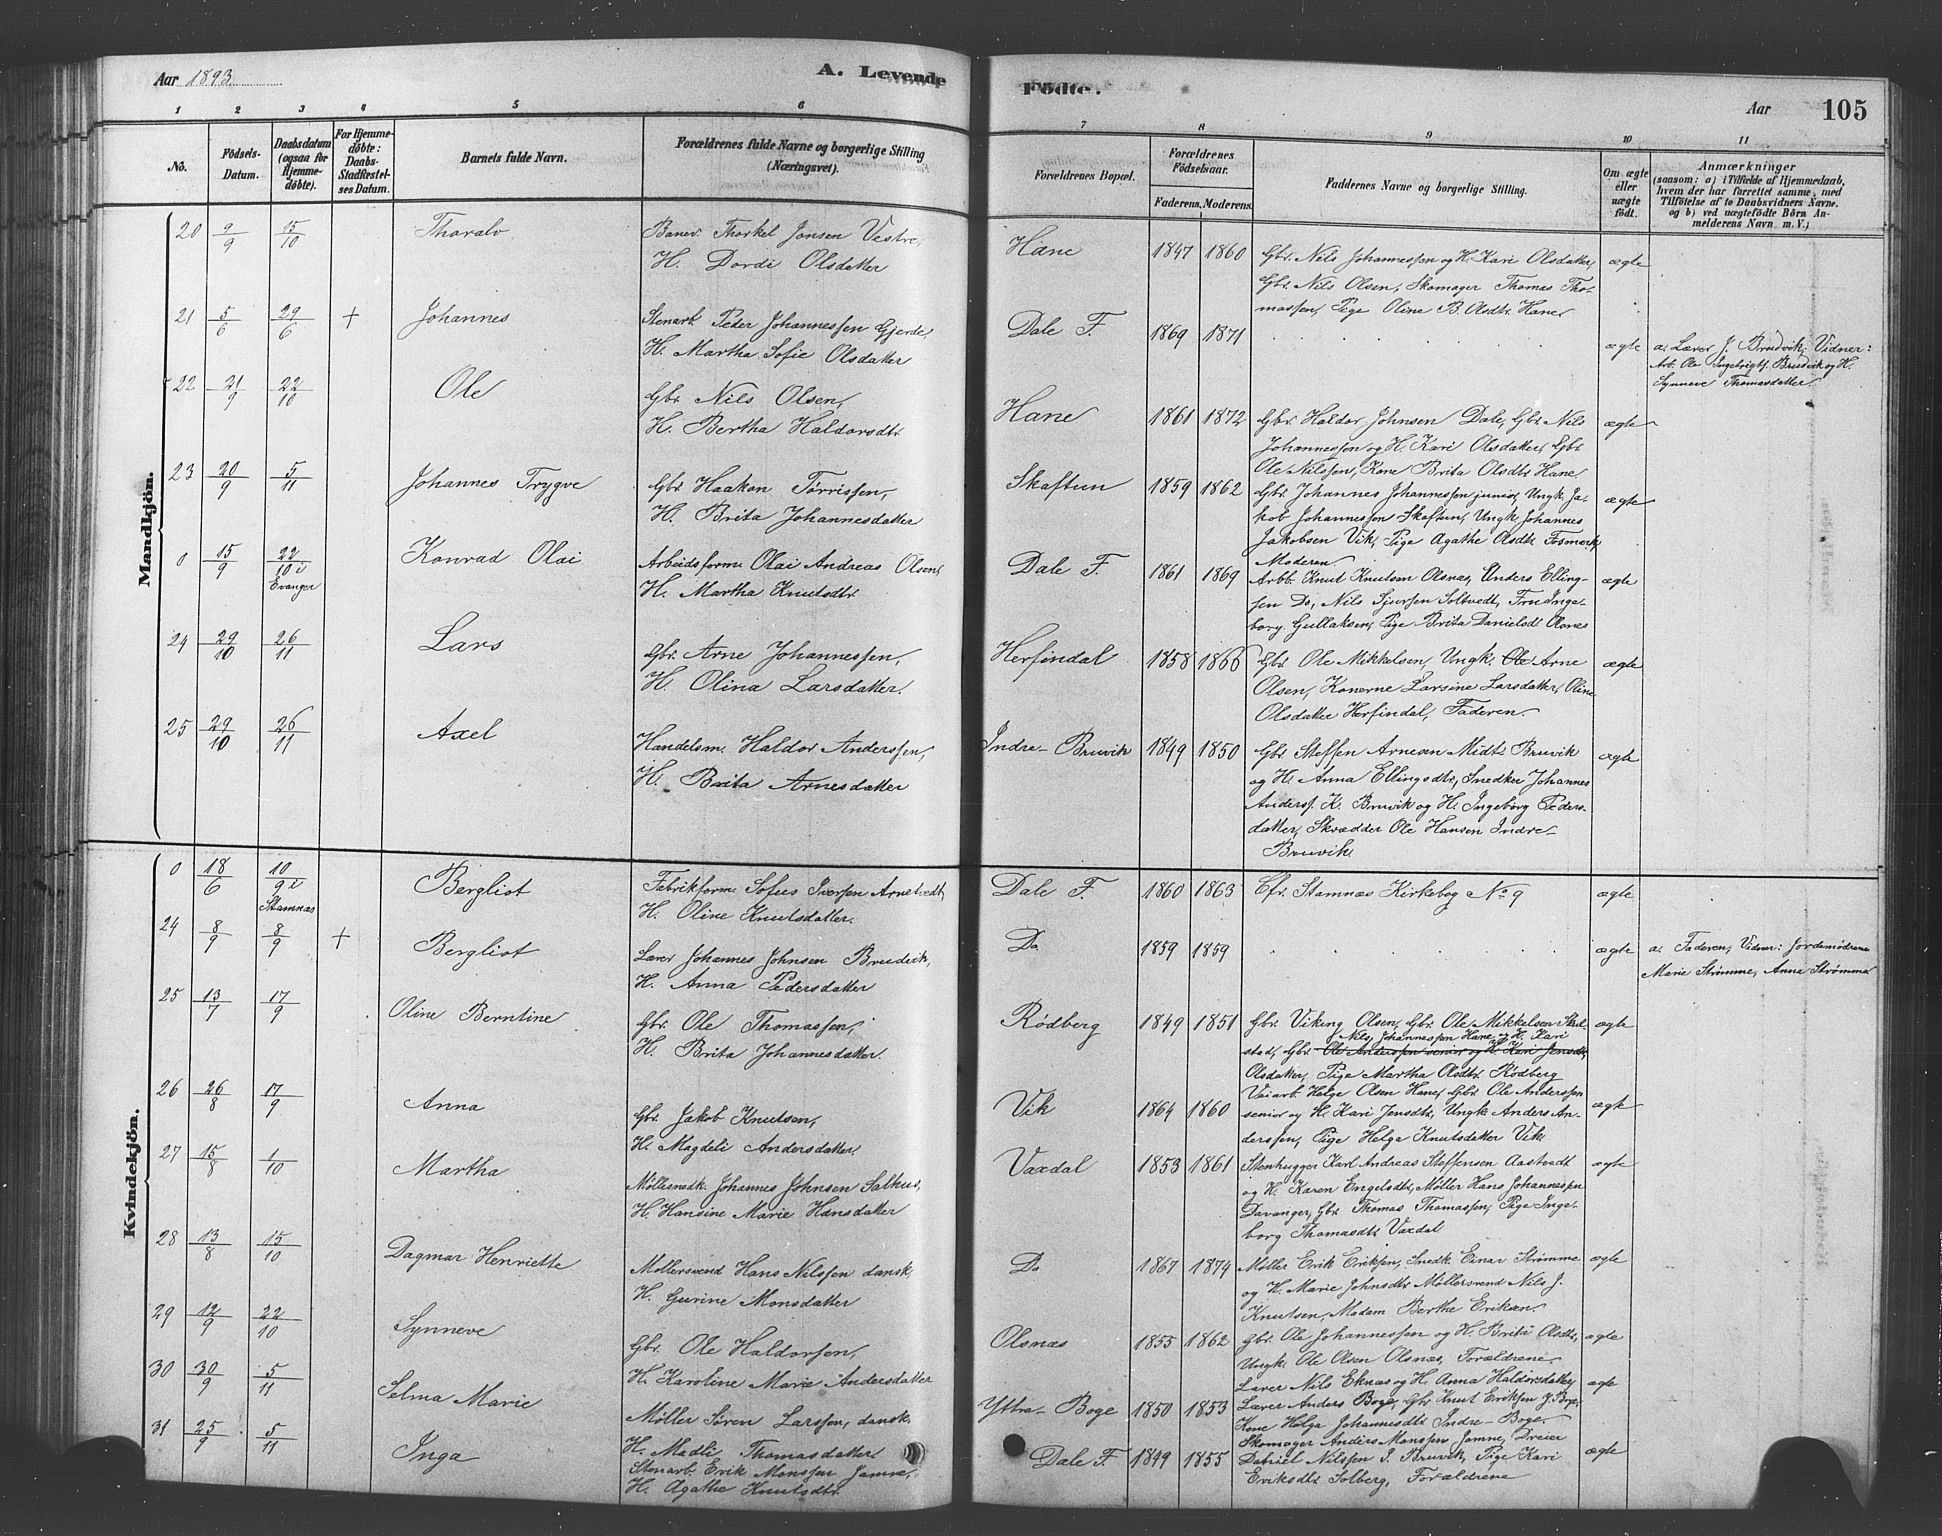 Aar 1893
A. Levende
Fødte.
Aar
105
1 2 3 4 5 6 7 8 9 10 11
No.
Födsels-Datum.
Daabsdatum (ogsaa för Hjemme-döbte).
For Hjemme-döbte: Daabs-Stadfæstel-ses Datum.
Barnets fulde Navn.
Forældrenes fulde Navne og borgerlige Stilling (Næringsvei).
Forældrenes Bopæl.
Forældrenes Födselsaar.
Faderens. Moderens.
Faddernes Navne og borgerlige Stilling.
Om ægte eller uægte födt.
Anmærkninger
(saasom: a) i Tilfælde af Hjemmedaab,
hvem der har forrettet samme, med
Tilföielse af to Daabsvidners Navne.
og b) ved uægtefödte Börn An-
melderens Navn m. V.)
Mandkjön.
20 9/9 15/10 Thoralv
Banev. Thorkel Jonsen Vestre,
H. Dordi Olsdatter
Hane 1847 1860
Gbr. Nils Johannessen og H. Kari Olsdatter,
Gbr. Nils Olsen, Skomager Thomas Tho-
massen, Pige Oline B. Olsdtr. Hane
ægte
21 5/6 29/6 + Johannes
Stenarb. Peder Johannessen Gjerde,
H. Martha Sofie Olsdatter
Dale F. 1869 1871
ægte
a. Lærer J. Brudvik; Vidner:
Arb. Ole Ingebrigts. Brudvik og H.
Synneve Thomasdatter
22 21/9 22/10 Ole
Gbr. Nils Olsen,
H. Bertha Haldorsdtr.
Hane 1861 1872
Gbr. Haldor Johnsen Dale, Gbr. Nils
Johannessen og H. Kari Olsdatter, Gbr.
Ole Nilssen, Kone Brita Olsdtr. Hane
ægte
23 20/9 5/11 Johannes Trygve
Gbr. Haakon Tørrissen,
H. Brita Johannesdatter
Skaftun 1859 1862
Gbr. Johannes Johannessen junior, Ungk. Ja-
kob Johannessen Skaftun, Ungk. Johannes
Jakobsen Vik, Pige Agathe Olsdtr. Fosmark,
Moderen.
ægte
0 15/9 22/10 i Evanger Konrad Olai
Arbeidsform. Olai Andreas Olsen,
H. Martha Knutsdtr.
Dale F. 1861 1869
Arbb. Knut Knutsen Olsnæs, Anders Elling-
sen Do, Nils Sjursen Soltvedt, Fru Inge-
borg Gullaksen, Pige Brita Danielsd. Olsnes
ægte
24 29/10 26/11 Lars
Gbr. Arne Johannessen,
H. Olina Larsdatter.
Herfindal 1858 1866
Gbr. Ole Mikkelsen, Ungk. Ole Arne
Olsen, Konerne Larsine Larsdatter, Oline
Olsdatter Herfindal, Faderen.
ægte
25 29/10 26/11 Axel
Handelsm. Haldor Anderssen,
H. Brita Arnesdatter
Indre-Bruvik 1849 1850
Gbr. Steffen Arnesen Midt-Bruvik
og H. Anna Ellingsdtr, Snedker Johannes
Anderss. K. Bruvik og H. Ingeborg Peders-
datter, Skrædder Ole Hansen Indre-
Bruvik
ægte
Kvindekjön.
0 18/6 10/9 i Stamnæs Bergliot
Fabrikform. Sofus Iversen Arnetvedt,
H. Oline Knutsdatter.
Dale F. 1860 1863
Cfr. Stamnæs Kirkebog No 9
ægte
24 8/9 8/9 + Bergliot
Lærer Johannes Johnsen Brudvik,
H. Anna Pedersdatter
Do 1859 1859
ægte
a. Faderen, Vidner: Jordemødrene
Marie Strømme, Anna Strømme
25 13/7 17/9 Oline Berntine
Gbr. Ole Thomassen,
H. Brita Johannesdatter.
Rødberg 1849 1851
Gbr. Viking Olsen, Gbr. Ole Mikkelsen Skul-
Nils Johannessen Hane og H. Kari
stad, Gbr. Ole Anderssen senior og H. Kari Jensdtr,
Olsdatter, Pige Martha Olsdtr. Rødberg
ægte
26 26/8 17/9 Anna
Gbr. Jakob Knutsen,
H. Magdeli Andersdatter.
Vik 1864 1860
Vaiarb. Helge Olsen Hane, Gbr. Ole Anderssen
senior og H. Kari Jensdtr, Ungk. Anders An-
derssen, Pige Helga Knutsdatter Vik
ægte
27 15/8 1/10 Martha
Møllesnedk. Johannes Johnsen Salhus,
H. Hansine Marie Hansdatter
Vaxdal 1853 1861
Stenhugger Karl Andreas Steffensen Aastvedt
og H. Karen Engelsdtr, Møller Hans Johannessen
Davanger, Gbr. Thomas Thomassen, Pige Inge-
borg Thomasdtr. Vaxdal
ægte
28 13/8 15/10 Dagmar Henriette
Møllersvend Hans Nilssen dansk,
H. Gurine Monsdatter
Do 1867 1874
Møller Erik Eriksen, Snedk. Einar Strømme
og H. Marie Johnsdtr. Møllersvend Nils J.
Knutsen, Madam Berthe Eriksen.
ægte
29 12/9 22/10 Synneve
Gbr. Ole Haldorsen,
H. Karoline Marie Andersdatter
Olsnæs 1855 1862
Gbr. Ole Johannessen og H. Brita Olsdtr,
Ungk. Ole Olsen Olsnæs, Forældrene.
ægte
30 30/9 5/11 Selma Marie
Møller Søren Larssen, dansk,
H. Madli Thomasdatter
Yttre-Boge 1850 1853
Lærer Nils Eknæs og H. Anna Haldorsdatter,
Lærer Anders Boge, Gbr. Knut Eriksen Y. Boge,
Kone Helga Johannesdtr. Indre-Boge.
ægte
31 25/9 5/11 Inga
Stenarb. Erik Monssen Jamne,
H. Agathe Knutsdtr.
Dale F. 1849 1855
Skomager Anders Monssen Jamne, Dreier
Daniel Nilssen I. Bruvik, Pige Kari
Eriksdtr. Solberg, Forældrene
ægte